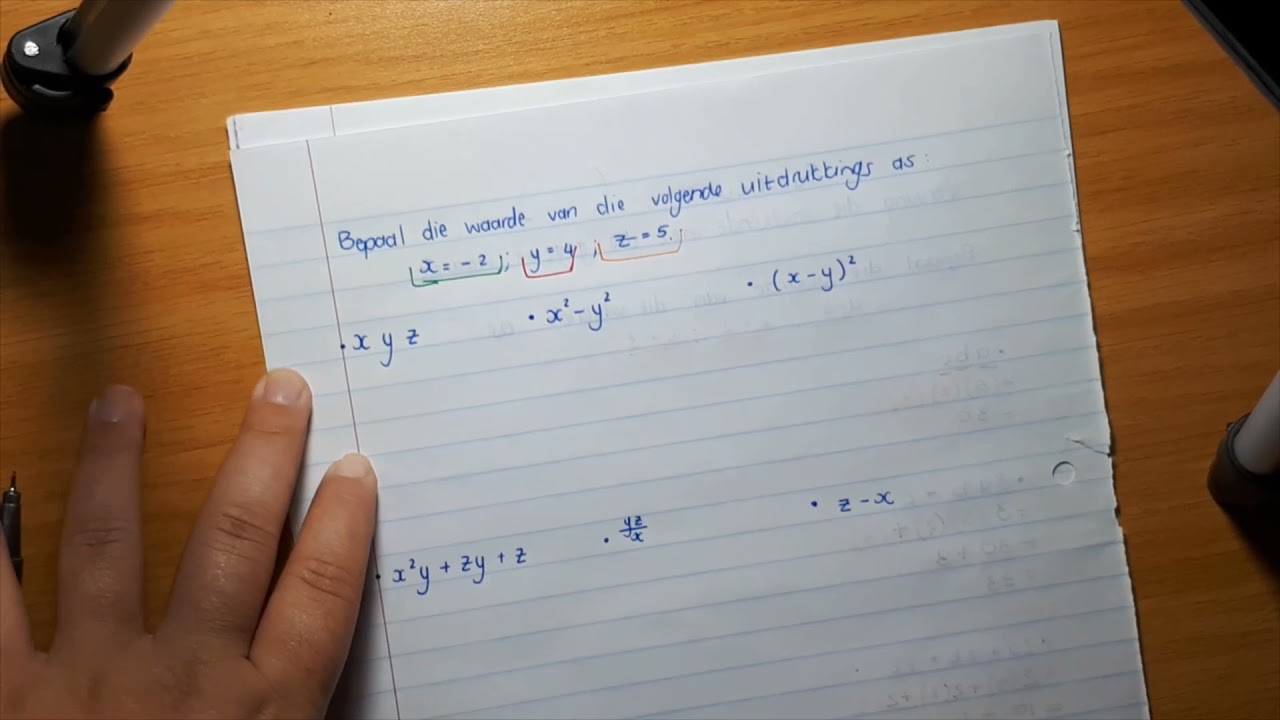 Bepaal die waarde van die volgende uitdrukkings as:
x = -2; y = 4; z = 5.
• x y z • x² - y² • (x - y)²
• x²y + zy + z • yz/x • z - x